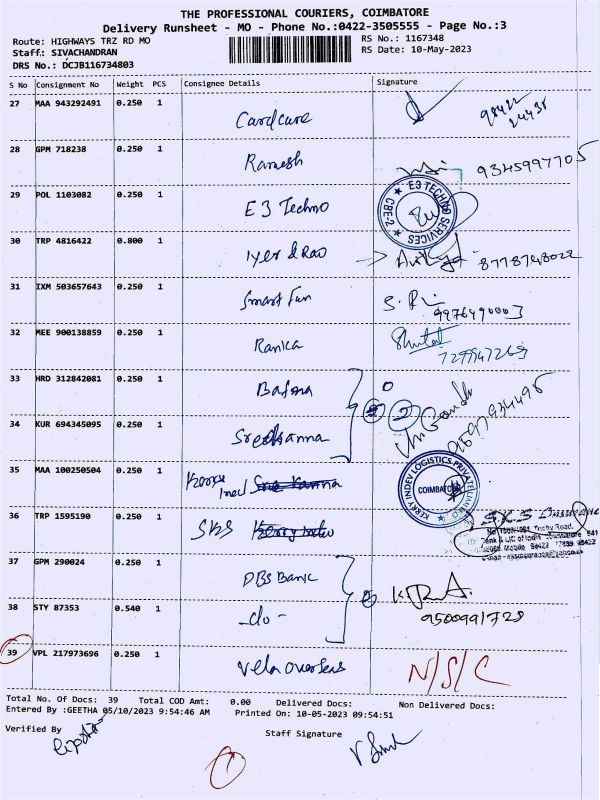 THE PROFESSIONAL COURIERS, COIMBATORE
Delivery Runsheet - MO - Phone No.:0422-3505555 - Page No.:3
Route: HIGHWAYS TRZ RD MO RS No.: 1167348
Staff: SIVACHANDRAN RS Date: 10-May-2023
DRS No.: DCJB116734803
S No Consignment No Weight PCS Consignee Details Signature
27 MAA 943292491 0.250 1 Cardcure 98422
24438
28 GPM 718238 0.250 1 Ramesh 9345997705
29 POL 1103082 0.250 1 E3 Techno E3 TECHNO SERVICES CBE-2
30 TRP 4816422 0.800 1 Iyer & Rao 8778748022
31 IXM 503657643 0.250 1 Smart Fun S. R
9976490003
32 MEE 900138859 0.250 1 Ranka 7299947269
33 HRD 312842081 0.250 1 Bafna
34 KUR 694345095 0.250 1 Sree Kanna 2 9597934495
35 MAA 100250504 0.250 1 Kerry Indev KERRY INDEV LOGISTICS PRIVATE LIMITED COIMBATORE
36 TRP 1595190 0.250 1 SKS Trichy Road,
37 GPM 290024 0.250 1 DBS Bank
38 STY 87353 0.540 1 -do- 9500991728
39 VPL 217973696 0.250 1 Vela overseas N/S/C
Total No. Of Docs: 39 Total COD Amt: 0.00 Delivered Docs: Non Delivered Docs:
Entered By :GEETHA 05/10/2023 9:54:46 AM Printed On: 10-05-2023 09:54:51
Verified By Staff Signature
1